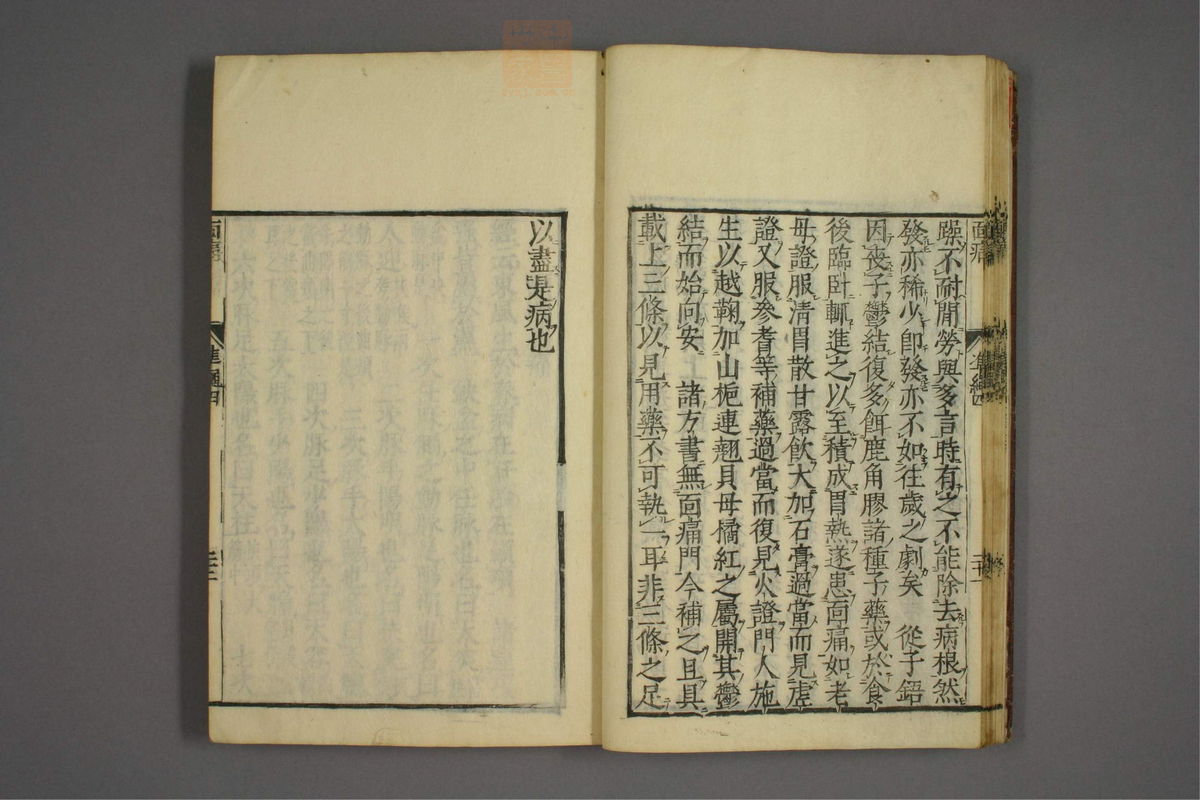 面痛
準繩四
躁不耐閒勞與多言時有之不能除去病根然
發亦稀少即發亦不如往歲之劇矣　從子銛
因喪子鬱結復多餌鹿角膠諸種子藥或於食
後臨卧輒進之以至積成胃熱遂患面痛如老
母證服清胃散甘露飲大加石膏過當而見虛
證又服參耆等補藥過當而復見火證門人施
生以越鞠加山梔連翹貝母橘紅之屬開其鬱
結而始向安　諸方書無面痛門今補之且具
載上三條以見用藥不可執一耳非三條之足
以盡是病也